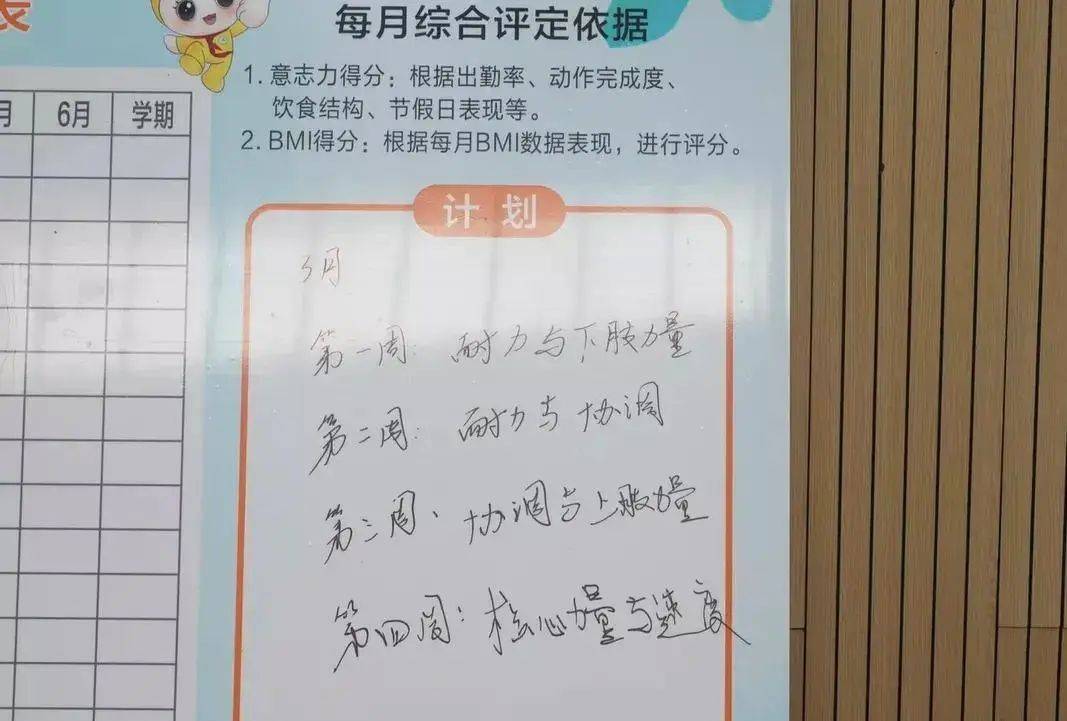 表
每月综合评定依据
1. 意志力得分：根据出勤率、动作完成度、
饮食结构、节假日表现等。
2. BMI得分：根据每月BMI数据表现，进行评分。
月 6月 学期
计划
3月
第一周：耐力与下肢力量
第二周：耐力与协调
第三周、协调与上肢力量
第四周：核心力量与速度